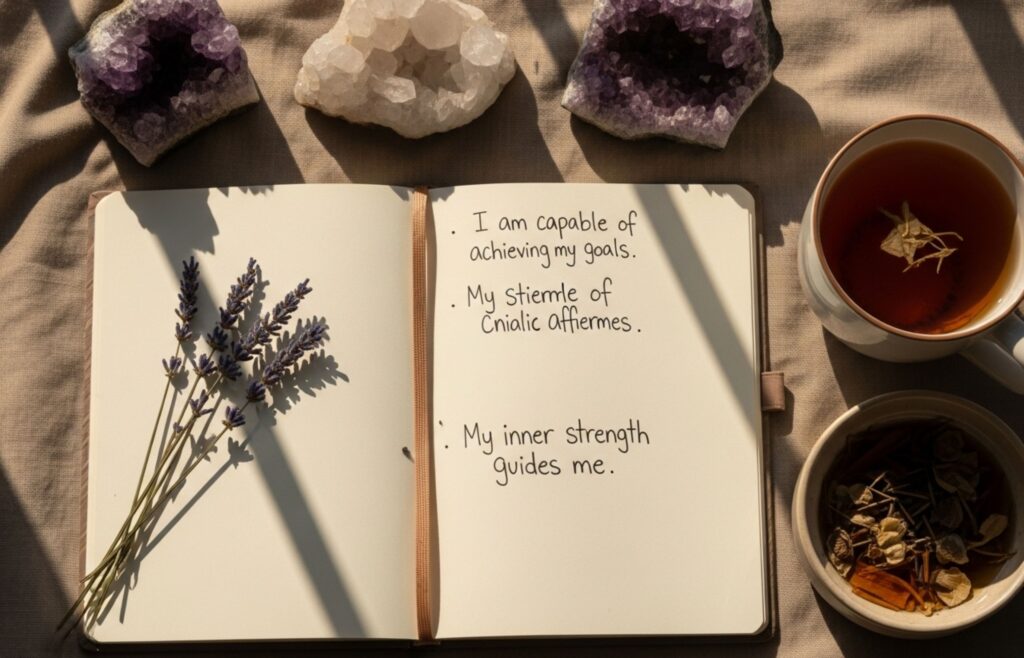 . I am capable of
achieving my goals.
. My Stiemle of
Cnialic Affermes.
: My inner strength
guides me.